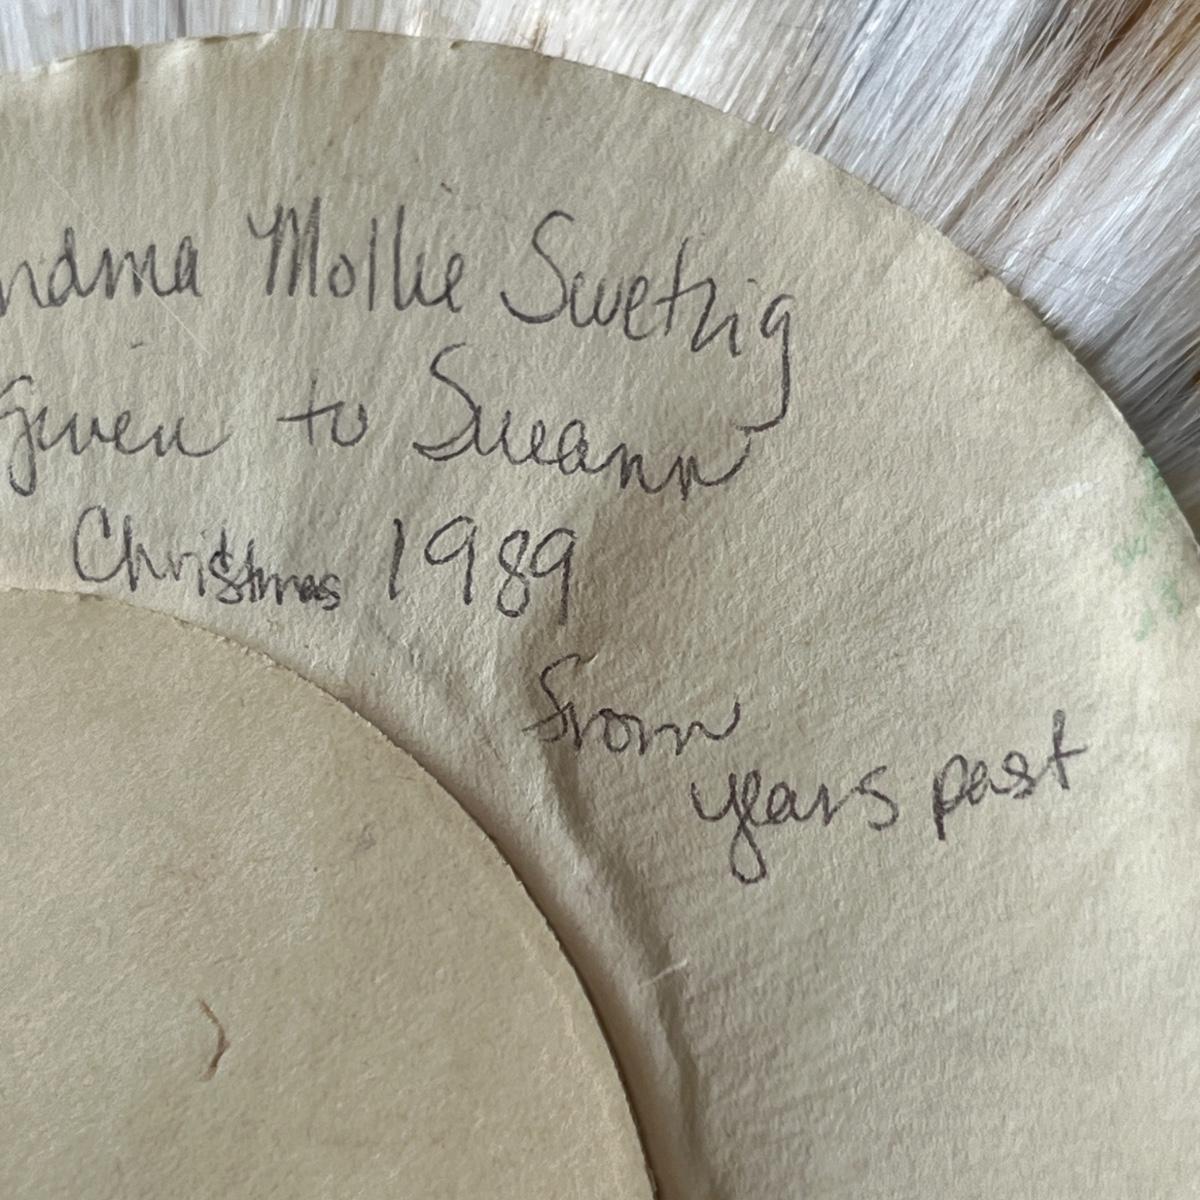 ndma Mollie Swetzig
Given to Sueann
Christmas 1989
From
years past